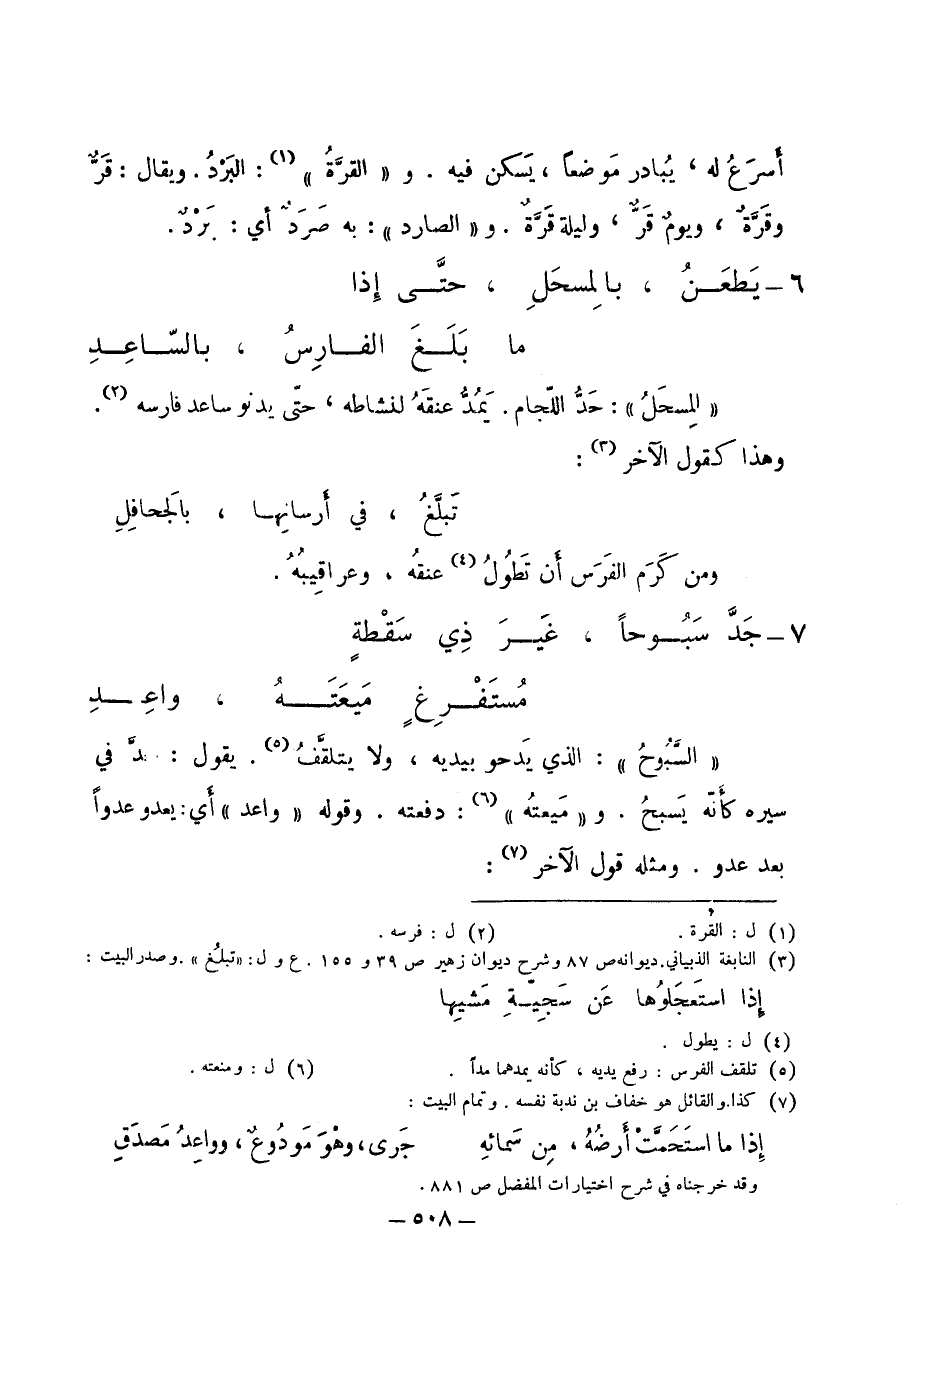 أَسرَعُ له ، يُبادر مَوضعاً ، يَسكن فيه . و « القرَّةُ » (١) : البَرْدُ . ويقال : قَرٌّ
وقَرَّةٌ ، ويومٌ قَرٌّ ، وليلة قَرَّةٌ . و « الصارد » : به صَرَدٌ أي : بَرْدٌ .
٦ – يَطعَنُ ، بالمِسحَلِ ، حتَّى إِذا
ما بَلَغَ الفارِسُ ، بالسّاعِدِ
« المِسحَلُ » : حَدُّ اللّجام . يَمُدُّ عنقَهُ لنشاطه ، حتّى يدنو ساعد فارسه (٢) .
وهذا كقول الآخر (٣) :
تَبلَّغُ ، في أَرسانِها ، بالجَحافِلِ
ومن كَرَمِ الفَرَس أَن تَطُولُ (٤) عنقُه ، وعراقِيبُهُ .
٧ – جَدَّ سَبُوحاً ، غَيرَ ذِي سَقْطةٍ
مُستَفْرِغٍ مَيعَتَهُ ، واعِدِ
« السَّبُوحُ » : الذي يَدحو بيديه ، ولا يتلقَّفُ (٥) . يقول : في
سيره كأَنّه يَسبحُ . و « مَيعتهُ » (٦) : دفعته . وقوله « واعد » أَي : يعدو عدواً
بعد عدو . ومثله قول الآخر (٧) :
(١) ل : القُرة . (٢) ل : فرسه .
(٣) النابغة الذبياني . ديوانه ص ٨٧ وشرح ديوان زهير ص ٣٩ و ١٥٥ . ع و ل : «تبلُغ» . وصدر البيت :
إِذا استَعجَلُوها عَن سَجِيّةِ مَشيِها
(٤) ل : يطول .
(٥) تلقف الفرس : رفع يديه ، كأنه يمدهما مداً . (٦) ل : ومنعته .
(٧) كذا . والقائل هو خفاف بن ندبة نفسه . وتمام البيت :
إِذا ما استَحَمَّتْ أَرضُهُ ، مِن سَمائهِ جَرى ، وهْوَ مَودُوعٌ ، وواعِدُ مَصدَقِ
وقد خرجناه في شرح اختيارات المفضل ص ٨٨١ .
– ٥٠٨ –